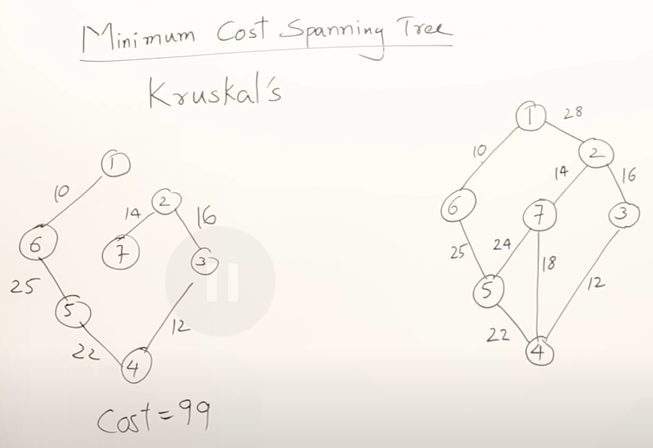 Minimum Cost Spanning Tree
Kruskal's
1
10
2
14
16
6
7
3
25
5
12
22
4
Cost = 99
1
28
10
2
14
16
6
7
3
25
24
18
5
12
22
4